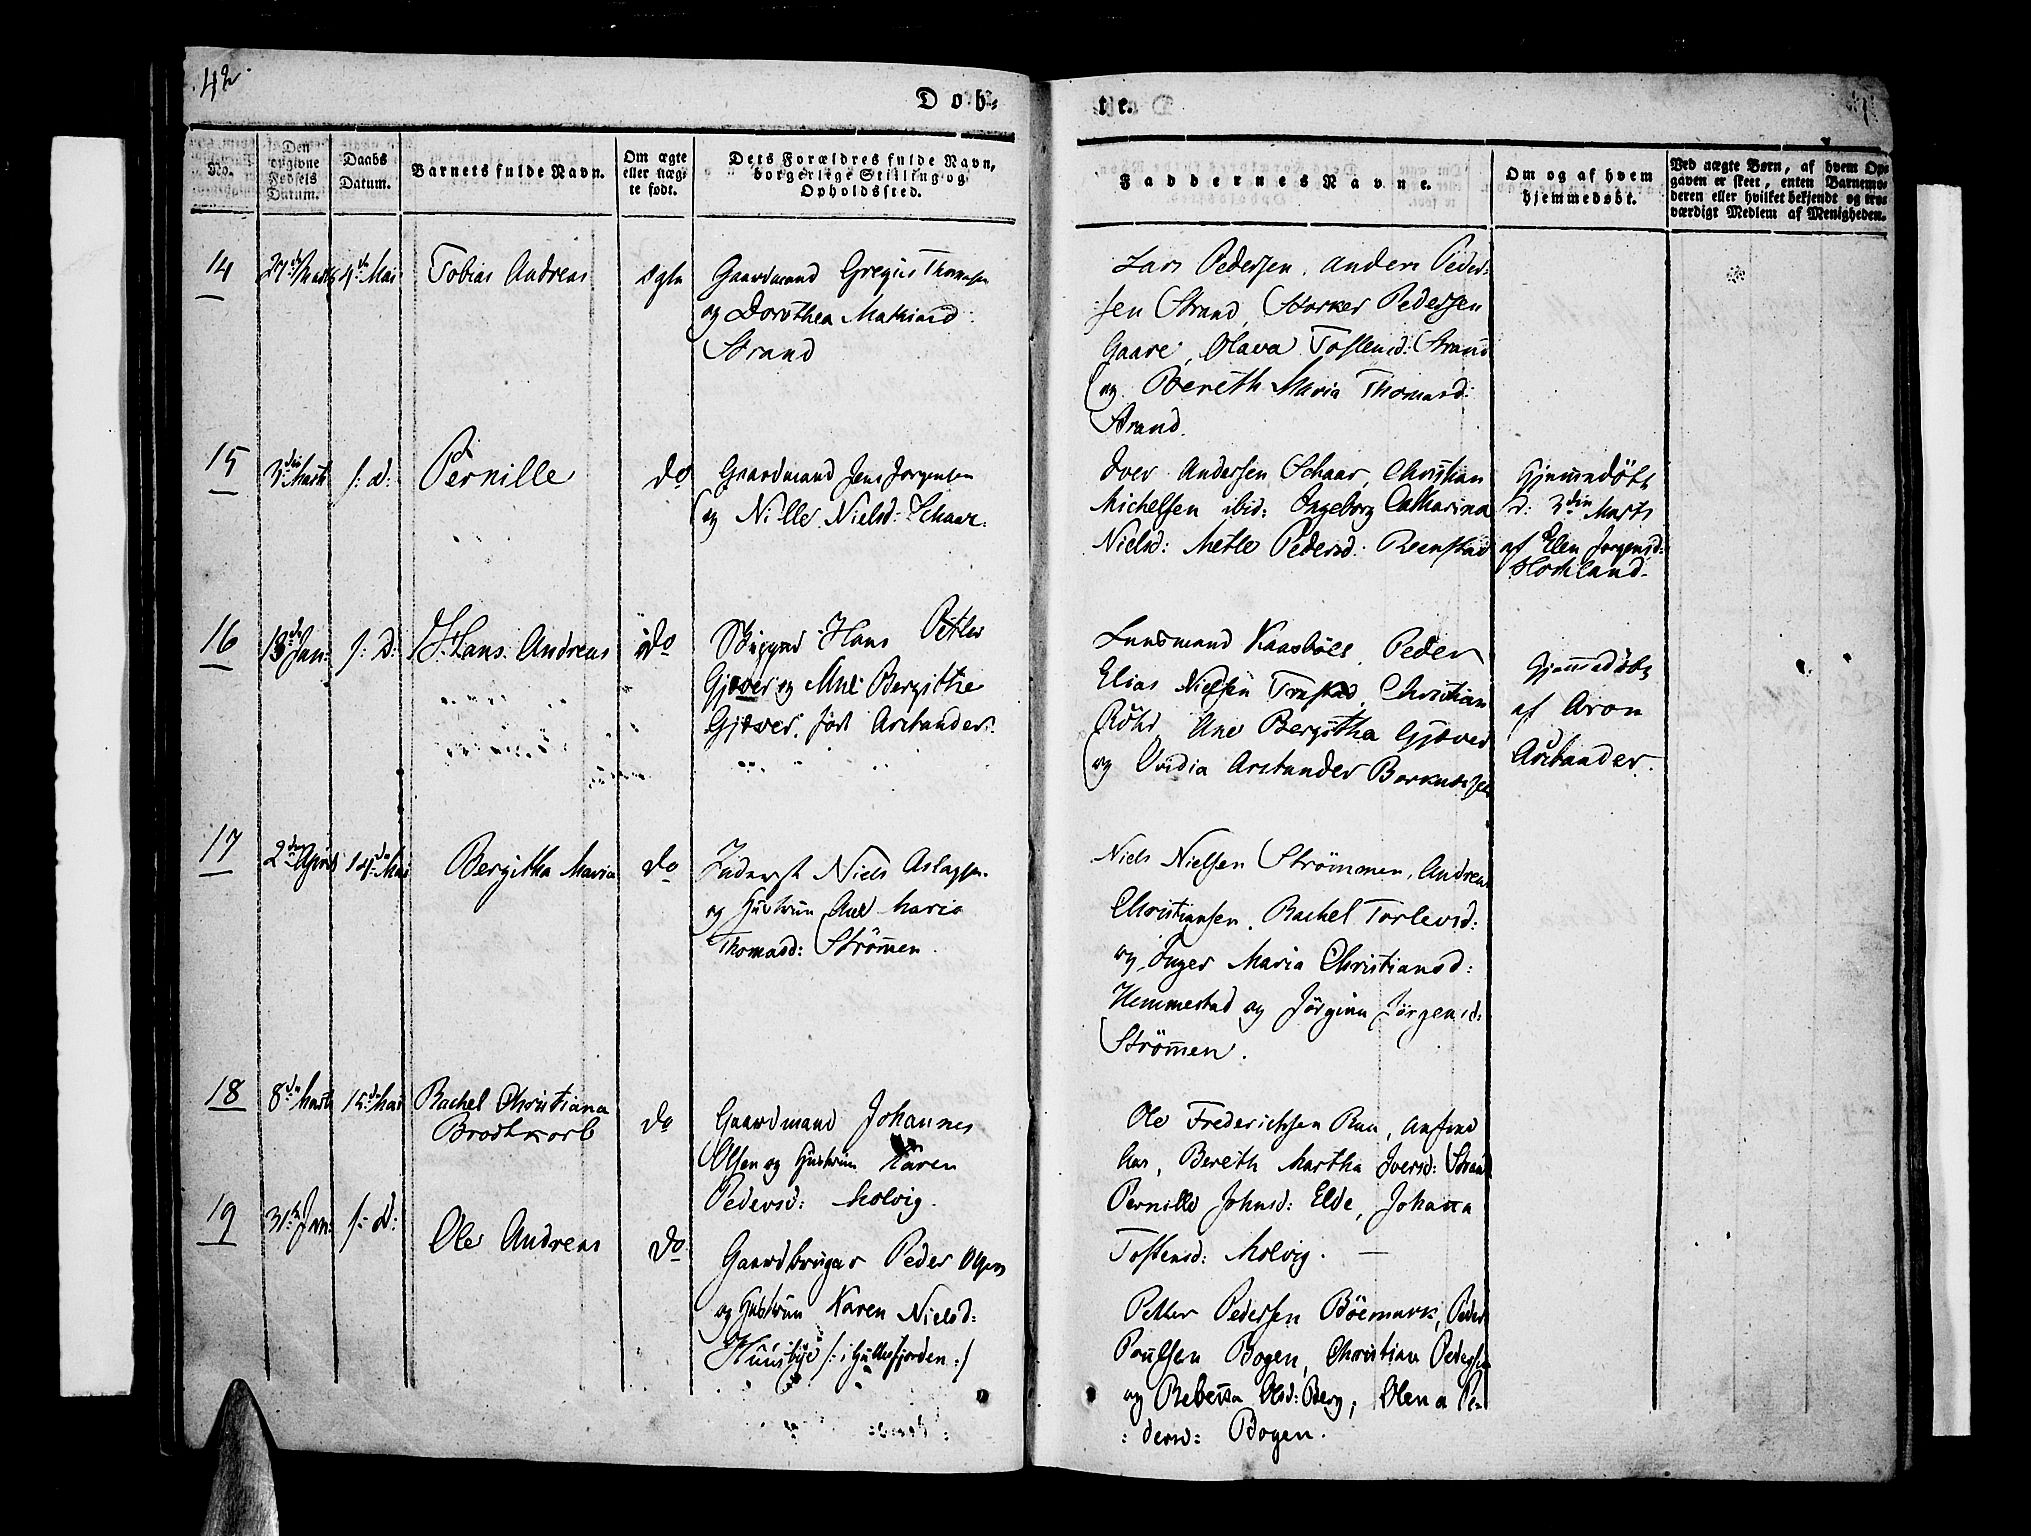 42
Døb-
te.
No.
Den
opgivne
Fødsels
Datum.
Daabs
Datum.
Barnets fulde Navn.
Om ægte
eller uæg-
te født.
Dets Forældres fulde Navn,
borgerlige Stilling og
Opholdsted.
Faddernes Navne.
Om og af hvem
hjemmedøbt.
Ved uægte Børn, af hvem Op-
gaven er skeet, enten Barnemo-
deren eller hvilket bekjendt og tro-
værdigt Medlem af Menigheden.
14
27de Marts
4de Mai
Tobias Andreas
ægte
Gaardmand Gregus Thomsen
og Dorothea Mathiasd:
Strand
Lars Pedersen, Anders Peder-
sen Strand, Storker Pedersen
Gaare, Olava Tostensd: Strand
og Bereth Maria Thomasd:
Strand.
15
3die Marts
s: d:
Pernille
do
Gaardmand Jens Jørgensen
og Nille Nielsd: Schaar.
Iver Andersen Schaar, Christian
Michelsen ibid: Ingeborg Catharina
Nielsd: Mette Pedersd: Reenstad
Hjemmedöbt
d: 3die Marts
af Elen Jørgensd:
Hokland.
16
13de Jan:
s: d:
Hans Andreas
do
Hans Petter
Gjæver og Ane Bergithe
Gjæver, født Arctander.
Lensmand Kaasböll, Peder
Elias Nielsen Trastad, Christian
Röhr, Ane Bergitha Gjæver
og Ovidia Arctander Borkenæs
Hjemmedöbt
af Aron
Arctander.
17
2den April
14de Mai
Bergitha Maria
do
Inderst Niels Aslagsen
og Hustrue Ane Maria
Thomasd: Strömen.
Niels Nielsen Strömmen, Andreas
Christiansen, Rachel Torlevsd:
og Inger Maria Christiansd:
Hemmestad og Jörgina Jörgensd:
Strömen.
18
8de Marts
15de Mai
Rachel Christiana
Brodtkorb
do
Gaardmand Johannes
Olsen og Hustrue Karen
Pedersd: Molvig.
Ole Frederichsen Ruu, Anfind
Aas, Bereth Martha Iversd: Strand
Pernille Johnsd: Elde, Johana
Tostensd: Molvig. —
19
31te Jan:
s: d:
Ole Andreas
do
Gaardbruger Peder Olsen
og Hustrue Karen Nielsd:
Huusbye /: i Gullesfjorden :/
Petter Pedersen Böemark, Peder
Poulsen Bogen, Christian Pedersen
og Rebecca Olsd: Berg, Olena Pe-
:dersd: Bogen.